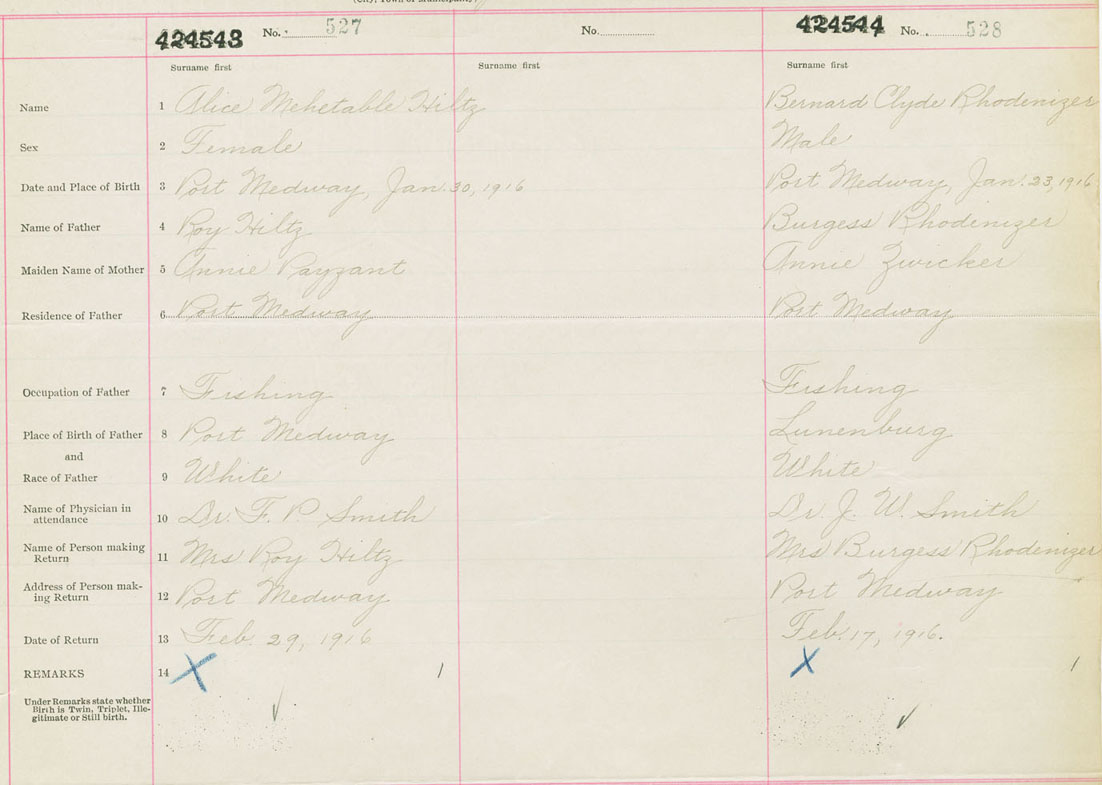 (City, Town or Municipality)
424543 No. 527
No.
424544 No. 528
Surname first
Surname first
Surname first
Name 1 Alice Mehetable Hiltz
Bernard Clyde Rhodenizer
Sex 2 Female
Male
Date and Place of Birth 3 Port Medway, Jan. 30, 1916
Port Medway, Jan. 23, 1916
Name of Father 4 Roy Hiltz
Burgess Rhodenizer
Maiden Name of Mother 5 Annie Payzant
Annie Zwicker
Residence of Father 6 Port Medway
Port Medway
Occupation of Father 7 Fishing
Fishing
Place of Birth of Father 8 Port Medway
Lunenburg
and
Race of Father 9 White
White
Name of Physician in
attendance 10 Dr. F. P. Smith
Dr. J. W. Smith
Name of Person making
Return 11 Mrs Roy Hiltz
Mrs Burgess Rhodenizer
Address of Person mak-
ing Return 12 Port Medway
Port Medway
Date of Return 13 Feb. 29, 1916
Feb. 17, 1916.
REMARKS 14 X 1
X 1
Under Remarks state whether
Birth is Twin, Triplet, Ille-
gitimate or Still birth.